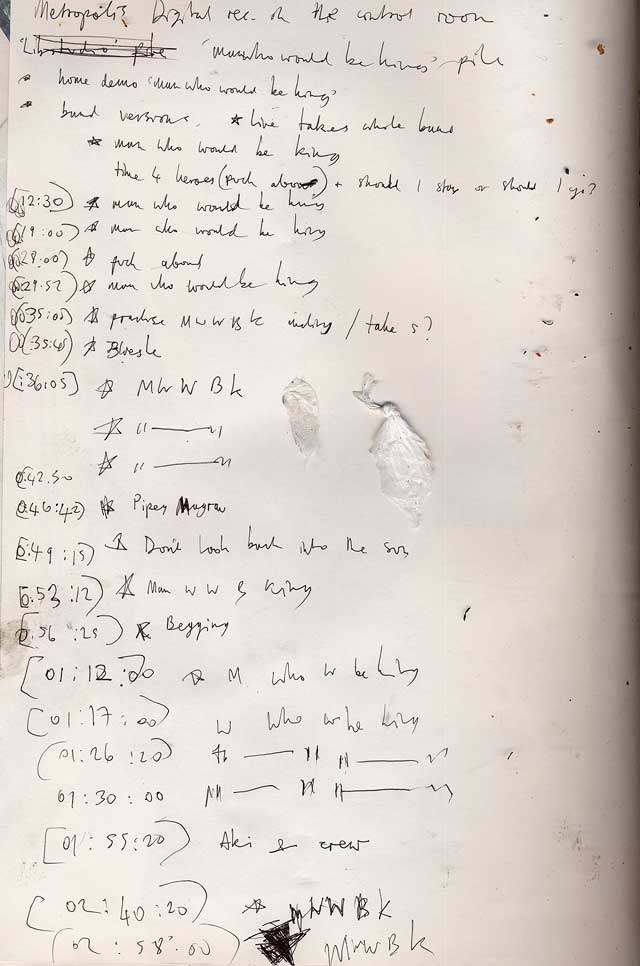 Metropolis Digital rec. on the control room
'man who would be king' pile
* home demo 'man who would be king'
* band versions. * live takes whole band
* man who would be king
time 4 heroes (fuck about) + should I stay or should I go?
(0:12:30) * man who would be king
19:00) * man who would be king
28:00) * fuck about
29:52) * man who would be king
35:05) * practise MWWBK / take 5?
(35:45) *
:36:05] * MWWBK
* " —— "
* " —— "
0:42.50
0:46:42) * Pipey Magraw
0:49:15) * Don't look back into the sun
0:53:12) * Man W W B King
0:56:25) * Begging
[01:12:00 * M who w be king
[01:17:00) who w be king
(01:26:20) " —— " " —— "
01:30:00 " —— " " —— "
[01:55:20) Aki & crew
[02:40:20) * MWWBK
(02:58:00) MWWBK